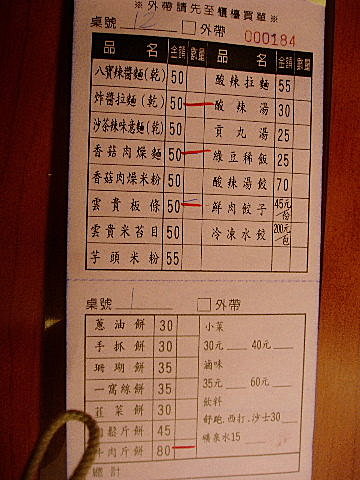 ※外帶請先至櫃檯買單※
桌號 12 □外帶 000184
品名 金額 數量 品名 金額 數量
八寶辣醬麵(乾) 50 酸辣拉麵 55
炸醬拉麵(乾) 50 酸辣湯 30
沙茶辣味意麵(乾) 50 貢丸湯 25
香菇肉燥麵 50 綠豆稀飯 25
香菇肉燥米粉 50 酸辣湯餃 70
雲貴板條 50 鮮肉餃子 45元/份
雲貴米苔目 50 冷凍水餃 200元/包
芋頭米粉 55
桌號 □外帶
蔥油餅 30 小菜
手抓餅 30 30元 40元
珊瑚餅 35 滷味
一窩絲餅 35 35元 60元
韮菜餅 30 飲料
鬆片餅 45 舒跑.西打.沙士30
牛肉片餅 80 礦泉水15
總計